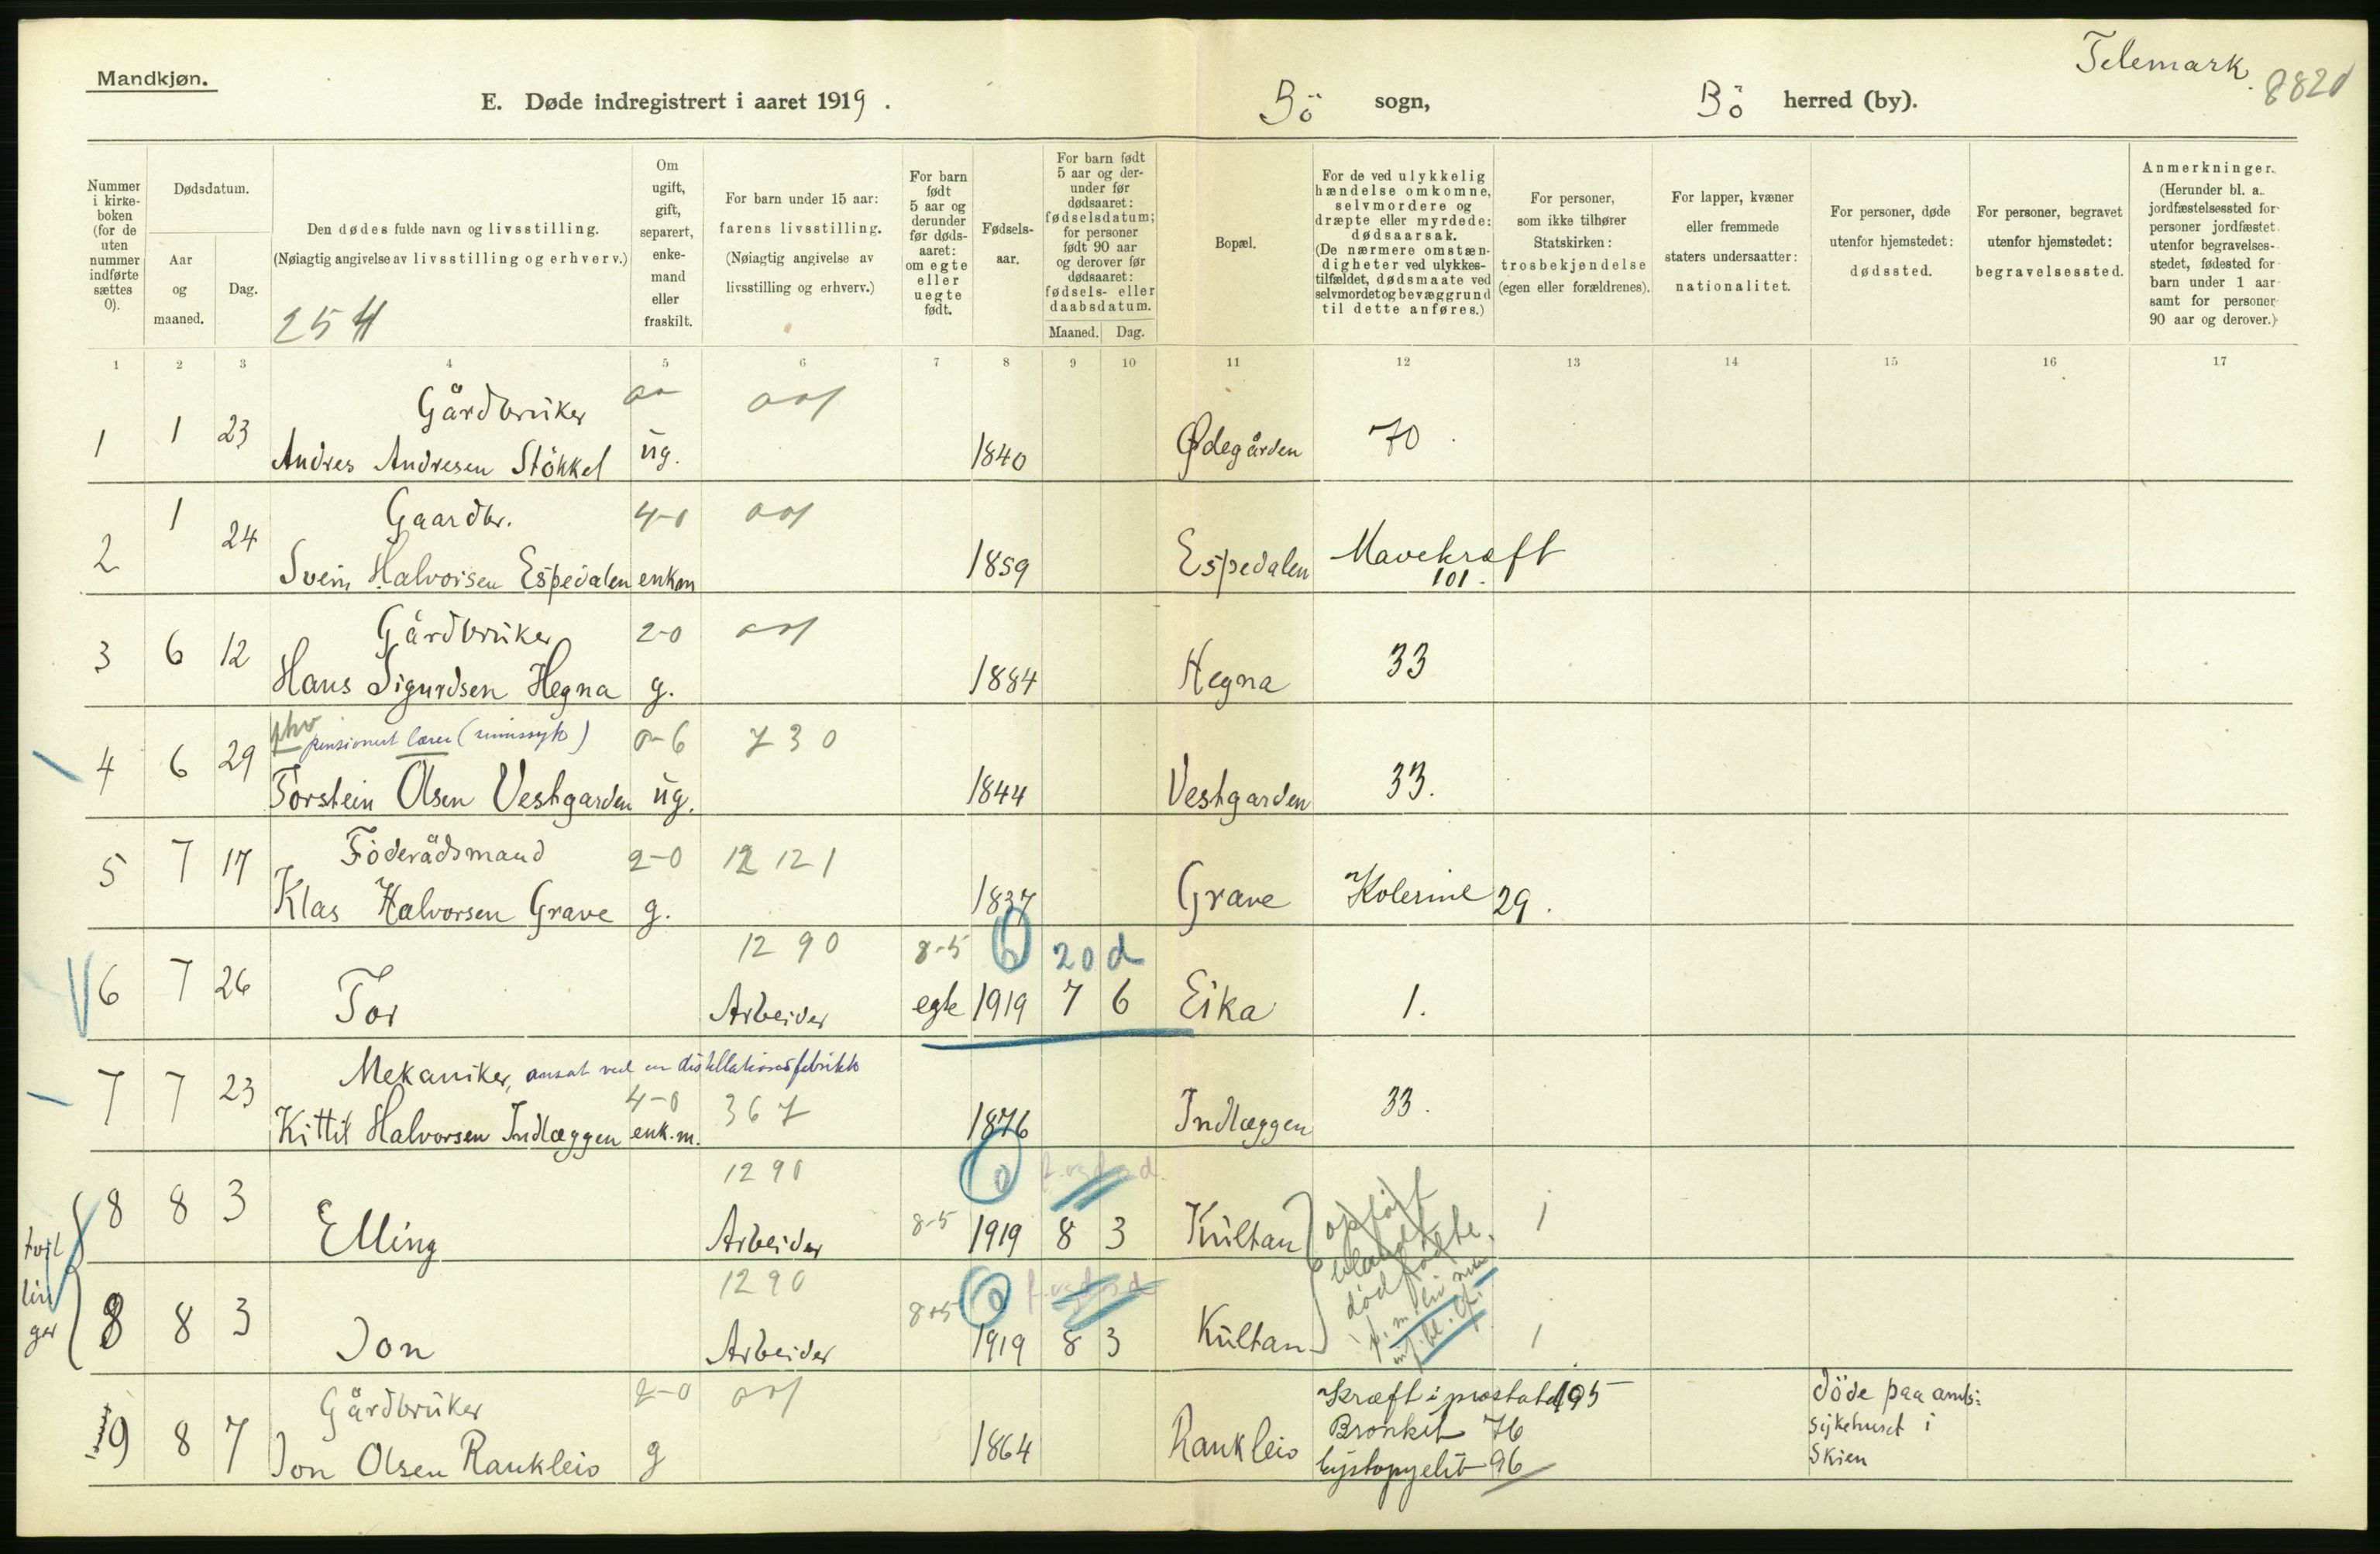 Telemark
8821
Mandkjøn.
E. Døde indregistrert i aaret 1919.
Bö sogn,
Bö herred (by).
Nummer i kirke-boken (for de uten nummer indførte sættes 0).
Dødsdatum.
Aar og maaned.
Dag.
Den dødes fulde navn og livsstilling.
(Nøiagtig angivelse av livsstilling og erhverv.)
254
Om ugift, gift, separert, enke-mand eller fraskilt.
For barn under 15 aar: farens livsstilling.
(Nøiagtig angivelse av livsstilling og erhverv.)
For barn født 5 aar og derunder før døds-aaret: om egte eller uegte født.
Fødsels-aar.
For barn født 5 aar og der-under før dødsaaret: fødselsdatum; for personer født 90 aar og derover før dødsaaret: fødsels- eller daabsdatum.
Maaned. Dag.
Bopæl.
For de ved ulykkelig hændelse omkomne, selvmordere og dræpte eller myrdede: dødsaarsak.
(De nærmere omstæn-digheter ved ulykkes-tilfældet, dødsmaate ved selvmordet og bevæggrund til dette anføres.)
For personer, som ikke tilhører Statskirken: trosbekjendelse (egen eller forældrenes).
For lapper, kvæner eller fremmede staters undersaatter: nationalitet.
For personer, døde utenfor hjemstedet: dødssted.
For personer, begravet utenfor hjemstedet: begravelsessted.
Anmerkninger.
(Herunder bl. a. jordfæstelsessted for personer jordfæstet utenfor begravelses-stedet, fødested for barn under 1 aar samt for personer 90 aar og derover.)
1 2 3 4 5 6 7 8 9 10 11 12 13 14 15 16 17
Gårdbruker
1 1 23 Andres Andresen Stökkel ug. 1840 Ødegården 70
Gaardbr. 4-0
2 1 24 Svein Halvorsen Espedalen enkm 1859 Espedalen Mavekræft
101.
Gårdbruker 2-0
3 6 12 Hans Sigurdsen Hegna g. 1884 Hegna 33
pensionert lærer (sinnssyk) 0-6 730
4 6 29 Torstein Olsen Vestgarden ug. 1844 Vestgarden 33.
Föderådsmand 2-0 12 121
5 7 17 Klas Halvorsen Grave g. 1837 Grave Kolerine 29.
12 90 8-5 20 d
6 7 26 Tor Arbeider egte 1919 7 6 Eika 1.
Mekaniker, ansat ved en distillationsfabrikk
4-0 367
7 7 23 Kittil Halvorsen Indlæggen enk.m. 1876 Indlæggen 33.
1290
8 8 3 Elling Arbeider 8-5 1919 8 3 Kultan
opført
blandt
dødfødte.
tvil
lin
ger
1290
8 8 3 Jon Arbeider 8-5 1919 8 3 Kultan
Gårdbruker 2-0 Kræft i prostata 105
9 8 7 Jon Olsen Raukleiv g 1864 Raukleiv Bronkit 76
Cystopyelit 96
döde paa amts:
sykehuset i
Skien